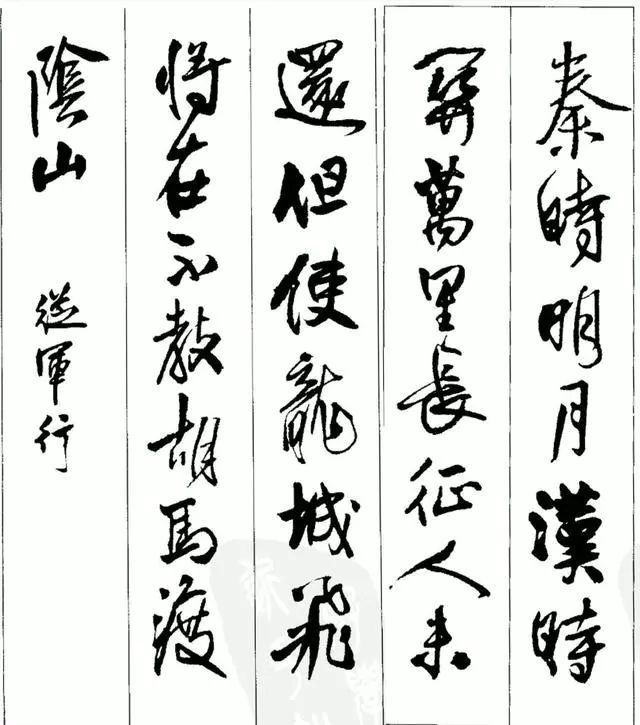 秦時明月漢時
關萬里長征人未
還但使龍城飛
將在不教胡馬渡
陰山 從軍行